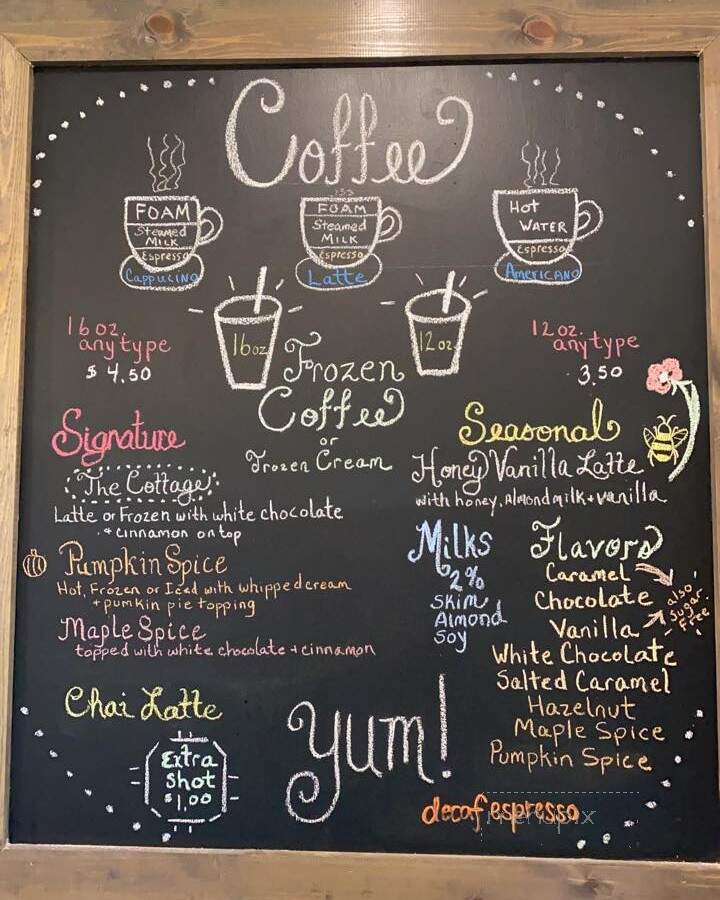 Coffee
FOAM
Steamed
MILK
Espresso
Cappucino
FOAM
Steamed
MILK
Espresso
Latte
Hot
WATER
Espresso
AMERICANO
16 oz.
any type
$ 4.50
16oz
12oz.
12 oz.
any type
3.50
Frozen
Coffee
or
Frozen Cream
Signature
The Cottage
Latte or Frozen with white chocolate
+ cinnamon on top
Pumpkin Spice
Hot, Frozen or Iced with whipped cream
+ pumkin pie topping
Maple Spice
topped with white chocolate + cinnamon
Chai Latte
Extra
Shot
$1.00
Seasonal
Honey Vanilla Latte
with honey, Almond milk + vanilla
Milks
2%
Skim
Almond
Soy
Flavors
Caramel
Chocolate
Vanilla
also
Sugar
Free
White Chocolate
Salted Caramel
Hazelnut
Maple Spice
Pumpkin Spice
yum!
decaf espresso
menupix